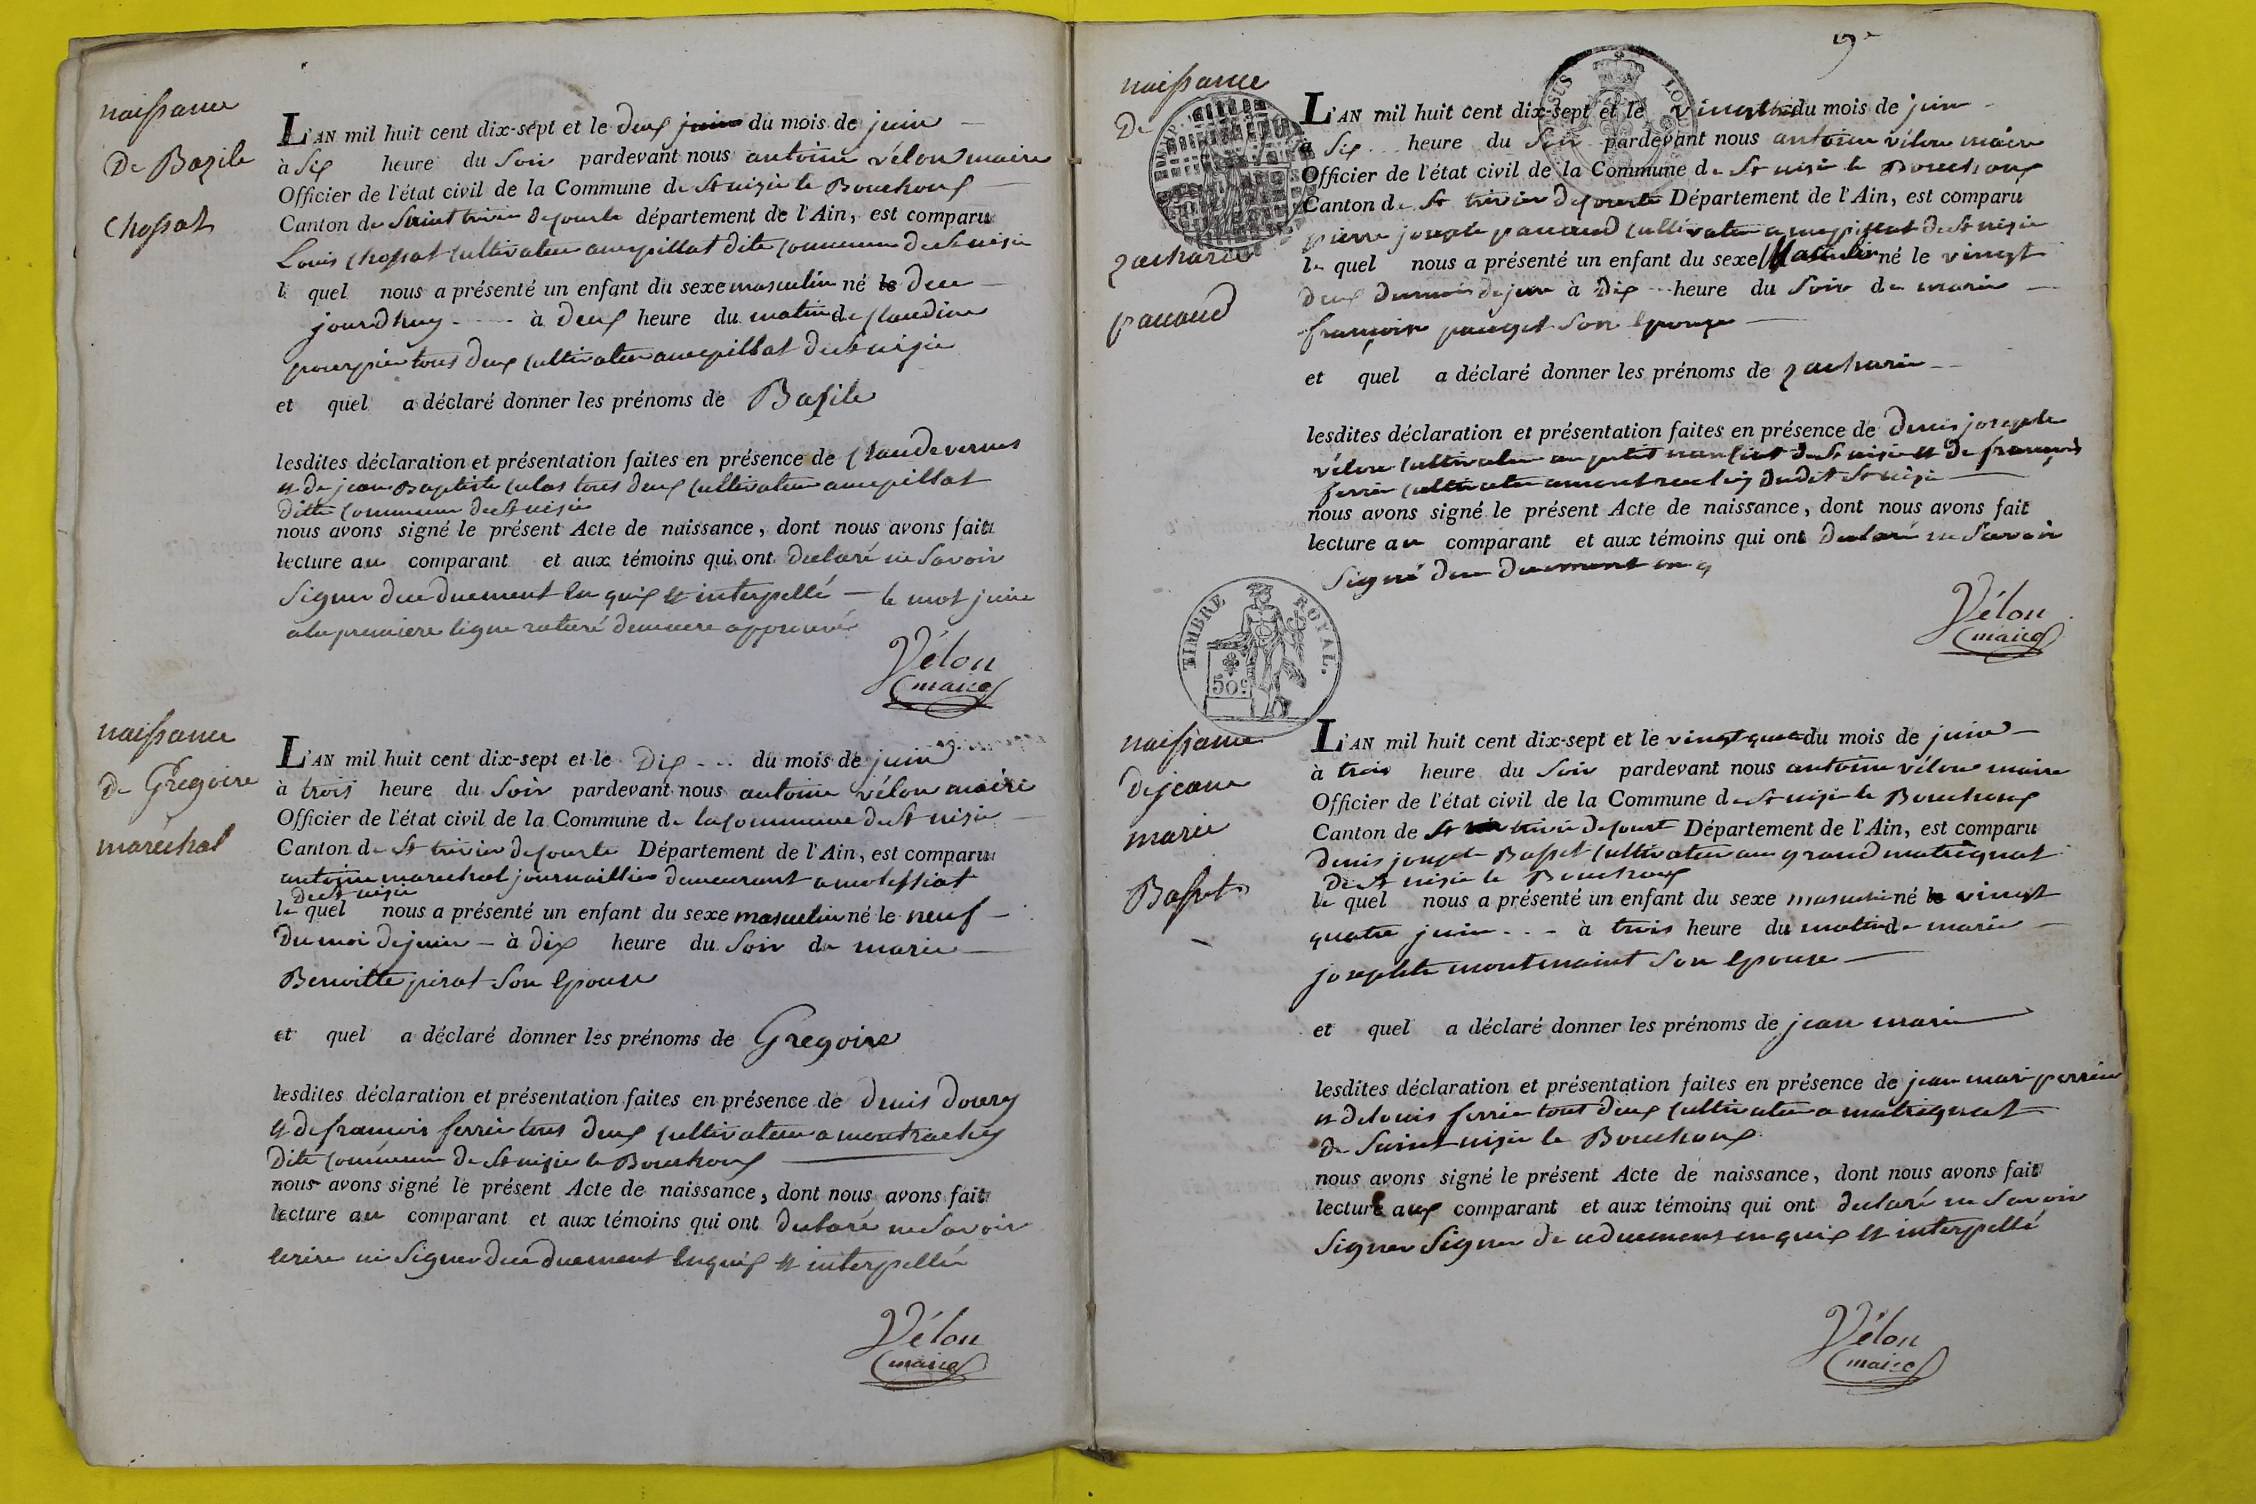 naissance
De Bazile
Chossat
L'AN mil huit cent dix-sept et le deux juin du mois de juin
à Six heure du Soir pardevant nous antoine vélon maire
Officier de l'état civil de la Commune de St nizie le Bouchoux
Canton de Saint trivier de courte département de l'Ain, est comparu
Louis Chossat Cultivateur au epillat dite Commune de St nizie
le quel nous a présenté un enfant du sexe masculin né le deu
jourdhuy à deux heure du matin de Claudine
tous deux Cultivateur au epillat de St nizie
et quel a déclaré donner les prénoms de Bazile
lesdites déclaration et présentation faites en présence de Claude vernes
et de jean Baptiste tous deux Cultivateur au epillat
ditte Commune de St nizie
nous avons signé le présent Acte de naissance, dont nous avons fait
lecture au comparant et aux témoins qui ont declaré ne Savoir
Signer duement enquis et interpellé le mot juin
a la premiere ligne raturé approuvé
Vélon
maire
naissance
De Gregoire
maréchal
L'AN mil huit cent dix-sept et le Dix du mois de juin
à trois heure du Soir pardevant nous antoine vélon maire
Officier de l'état civil de la Commune de la Commune de St nizie
Canton de St trivier de courte Département de l'Ain, est comparu
antoine marechal journaillier demeurant a molessiat
de St nizie
le quel nous a présenté un enfant du sexe masculin né le neuf
du moi de juin à dix heure du Soir de marie
Benoitte pirat Son Epouse
et quel a déclaré donner les prénoms de Gregoire
lesdites déclaration et présentation faites en présence de denis
et de francois ferrier tous deux Cultivateur a montrachy
dite Commune de St nizie le Bouchoux
nous avons signé le présent Acte de naissance, dont nous avons fait
lecture au comparant et aux témoins qui ont declaré ne Savoir
Ecrire ni Signer duement Enquis et interpellé
Vélon
maire
9e
naissance
De
zacharie
panaud
L'AN mil huit cent dix-sept et le du mois de juin
à Six heure du Soir pardevant nous antoine vélon maire
Officier de l'état civil de la Commune de St nizie le Bouchoux
Canton de St trivier de courte Département de l'Ain, est comparu
pierre joseph panaud Cultivateur de St nizie
le quel nous a présenté un enfant du sexe Masculin né le vingt
deux du mois de juin à Dix heure du Soir de marie
francoise pauget Son Epouse
et quel a déclaré donner les prénoms de zacharie
lesdites déclaration et présentation faites en présence de denis joseph
vélon Cultivateur au petit de St nizie et de francois
ferrier Cultivateur a montrachy dudit St nizie
nous avons signé le présent Acte de naissance, dont nous avons fait
lecture au comparant et aux témoins qui ont declaré ne Savoir
Signé duement
TIMBRE ROYAL.
50c
Vélon
maire
naissance
de jean
marie
Basset
L'AN mil huit cent dix-sept et le du mois de juin
à trois heure du Soir pardevant nous antoine vélon maire
Officier de l'état civil de la Commune de St nizie le Bouchoux
Canton de St trivier de court Département de l'Ain, est comparu
denis joseph Basset Cultivateur au grand matrignat
de St nizie le Bouchoux
le quel nous a présenté un enfant du sexe masculin né le vingt
quatre juin à trois heure du matin de marie
josephte montmaint Son Epouse
et quel a déclaré donner les prénoms de jean marie
lesdites déclaration et présentation faites en présence de jean marie perrin
et de louis ferrier tout deux Cultivateur a matrignat
de Saint nizie le Bouchoux
nous avons signé le présent Acte de naissance, dont nous avons fait
lecture aux comparant et aux témoins qui ont declaré ne Savoir
Signer Signer de duement enquis et interpellé
Vélon
maire